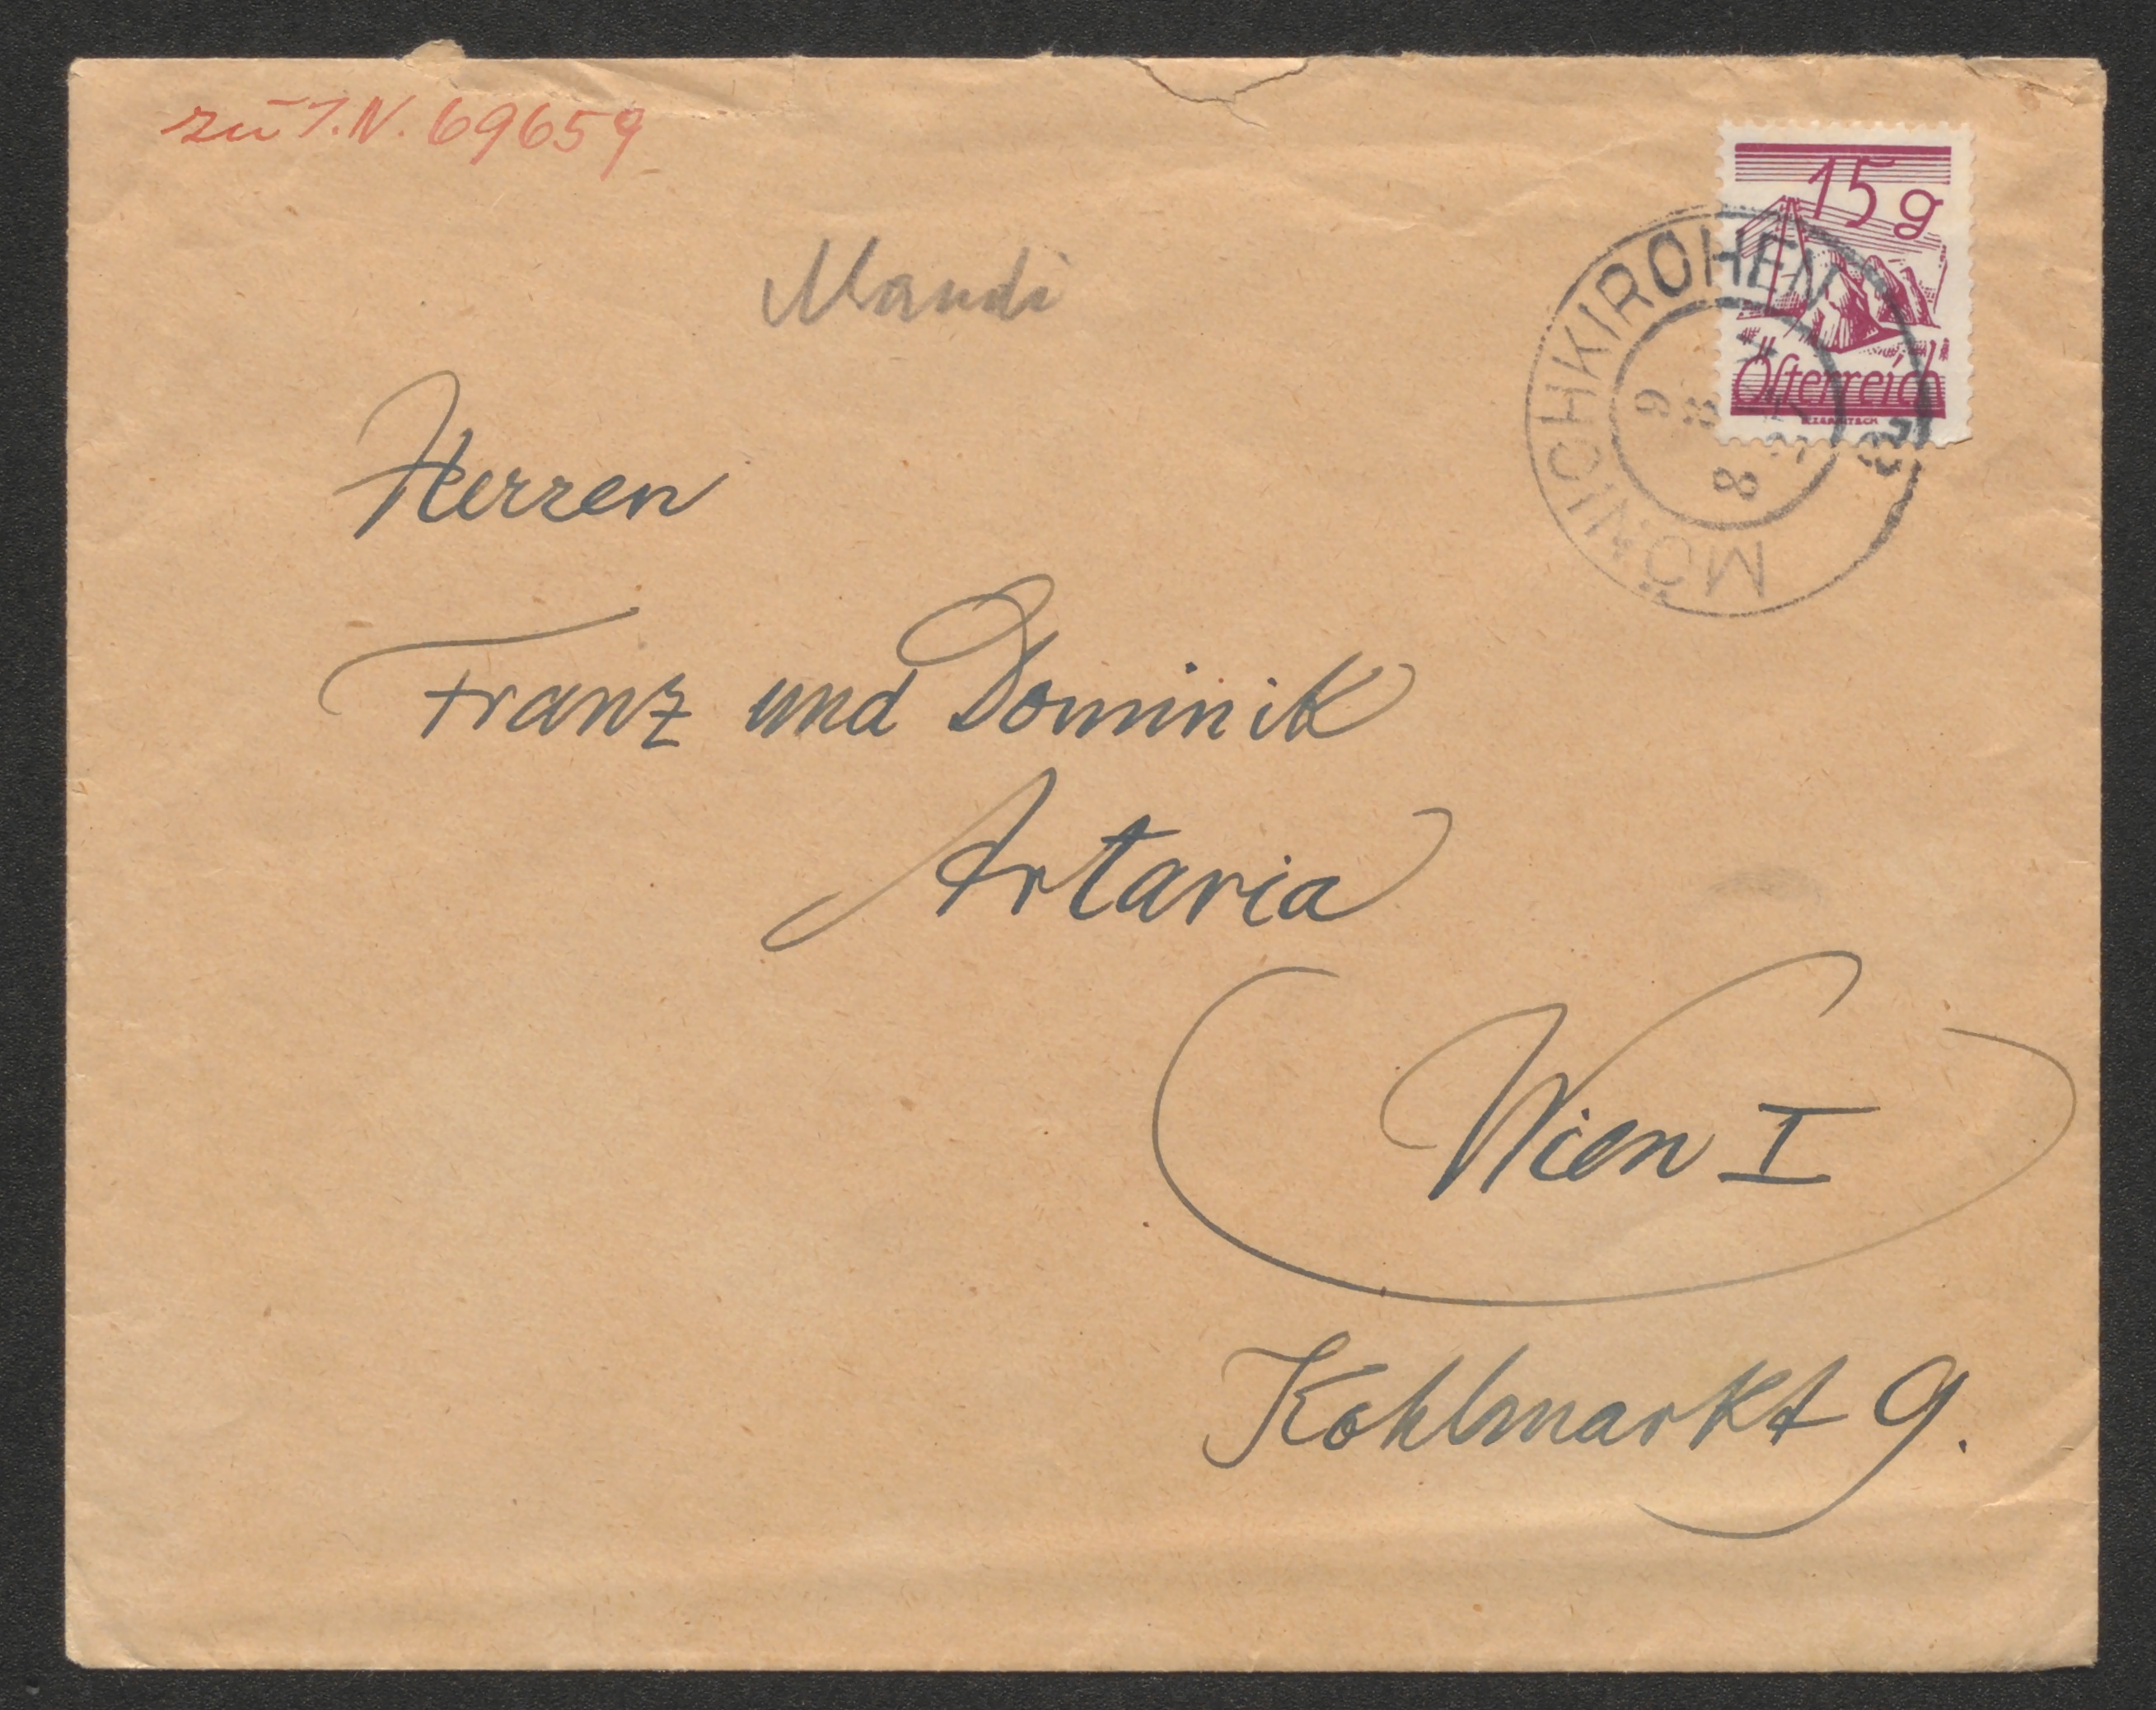 zu I.N. 69659
Mandi
15 g
Österreich
MÖNICHKIRCHEN
Herren
Franz und Dominik
Artaria
Wien I
Kohlmarkt 9.